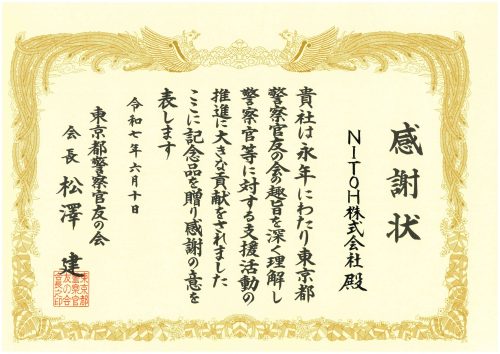 感謝状
NITOH株式会社 殿
貴社は永年にわたり東京都
警察官友の会の趣旨を深く理解し
警察官等に対する支援活動の
推進に大きな貢献をされました
ここに記念品を贈り感謝の意を
表します
令和七年六月十日
東京都警察官友の会
会長 松澤 建
東京都
警察官
友の会
会長之印